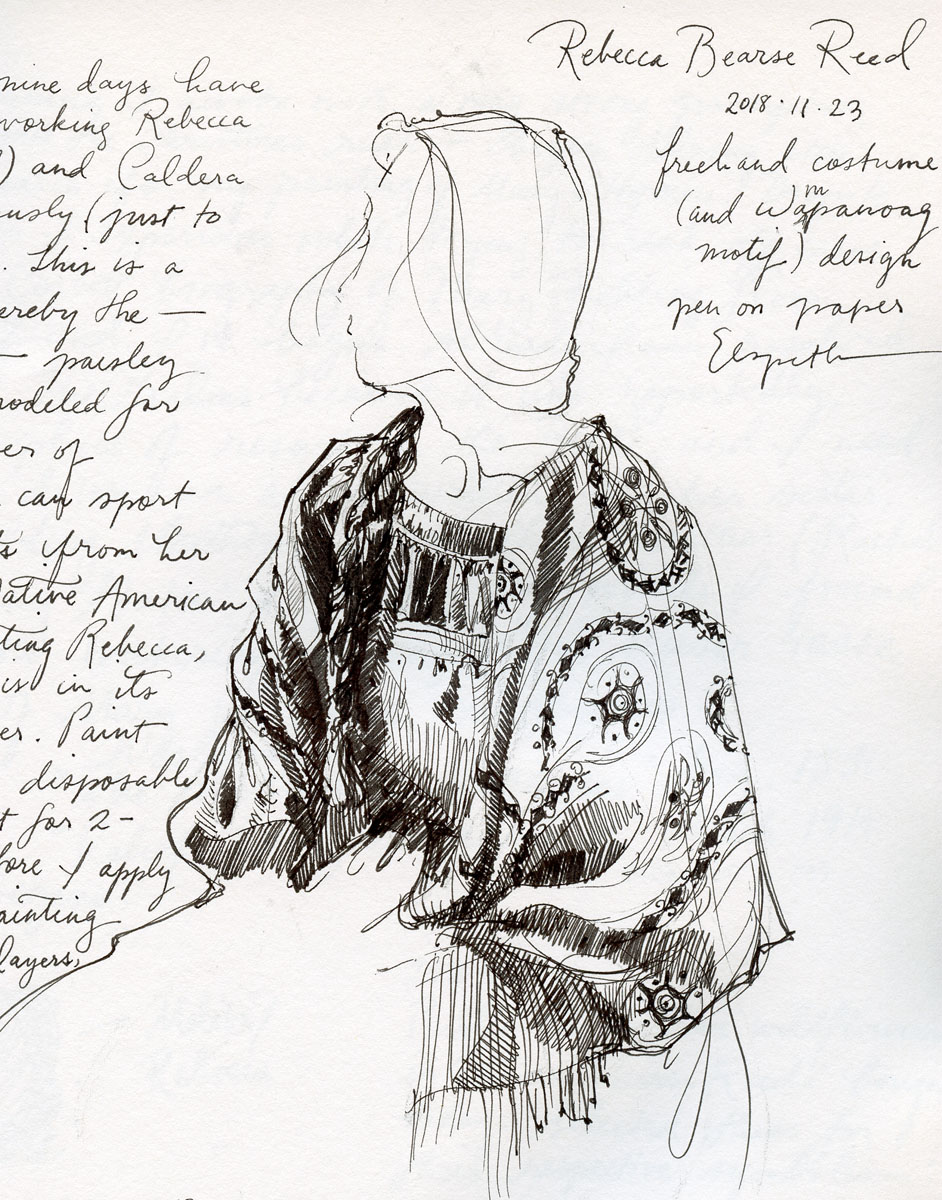 Rebecca Bearse Reed
2018·11·23
freehand costume
(and Wampanoag
motif) design
pen on paper
Elspeth
nine days have
working Rebecca
) and Caldera
ously (just to
. This is a
ereby the —
— paisley
modeled for
er of
can sport
ts from her
Native American
ting Rebecca,
is in its
er. Paint
disposable
t for 2-
fore I apply
ainting
layers,